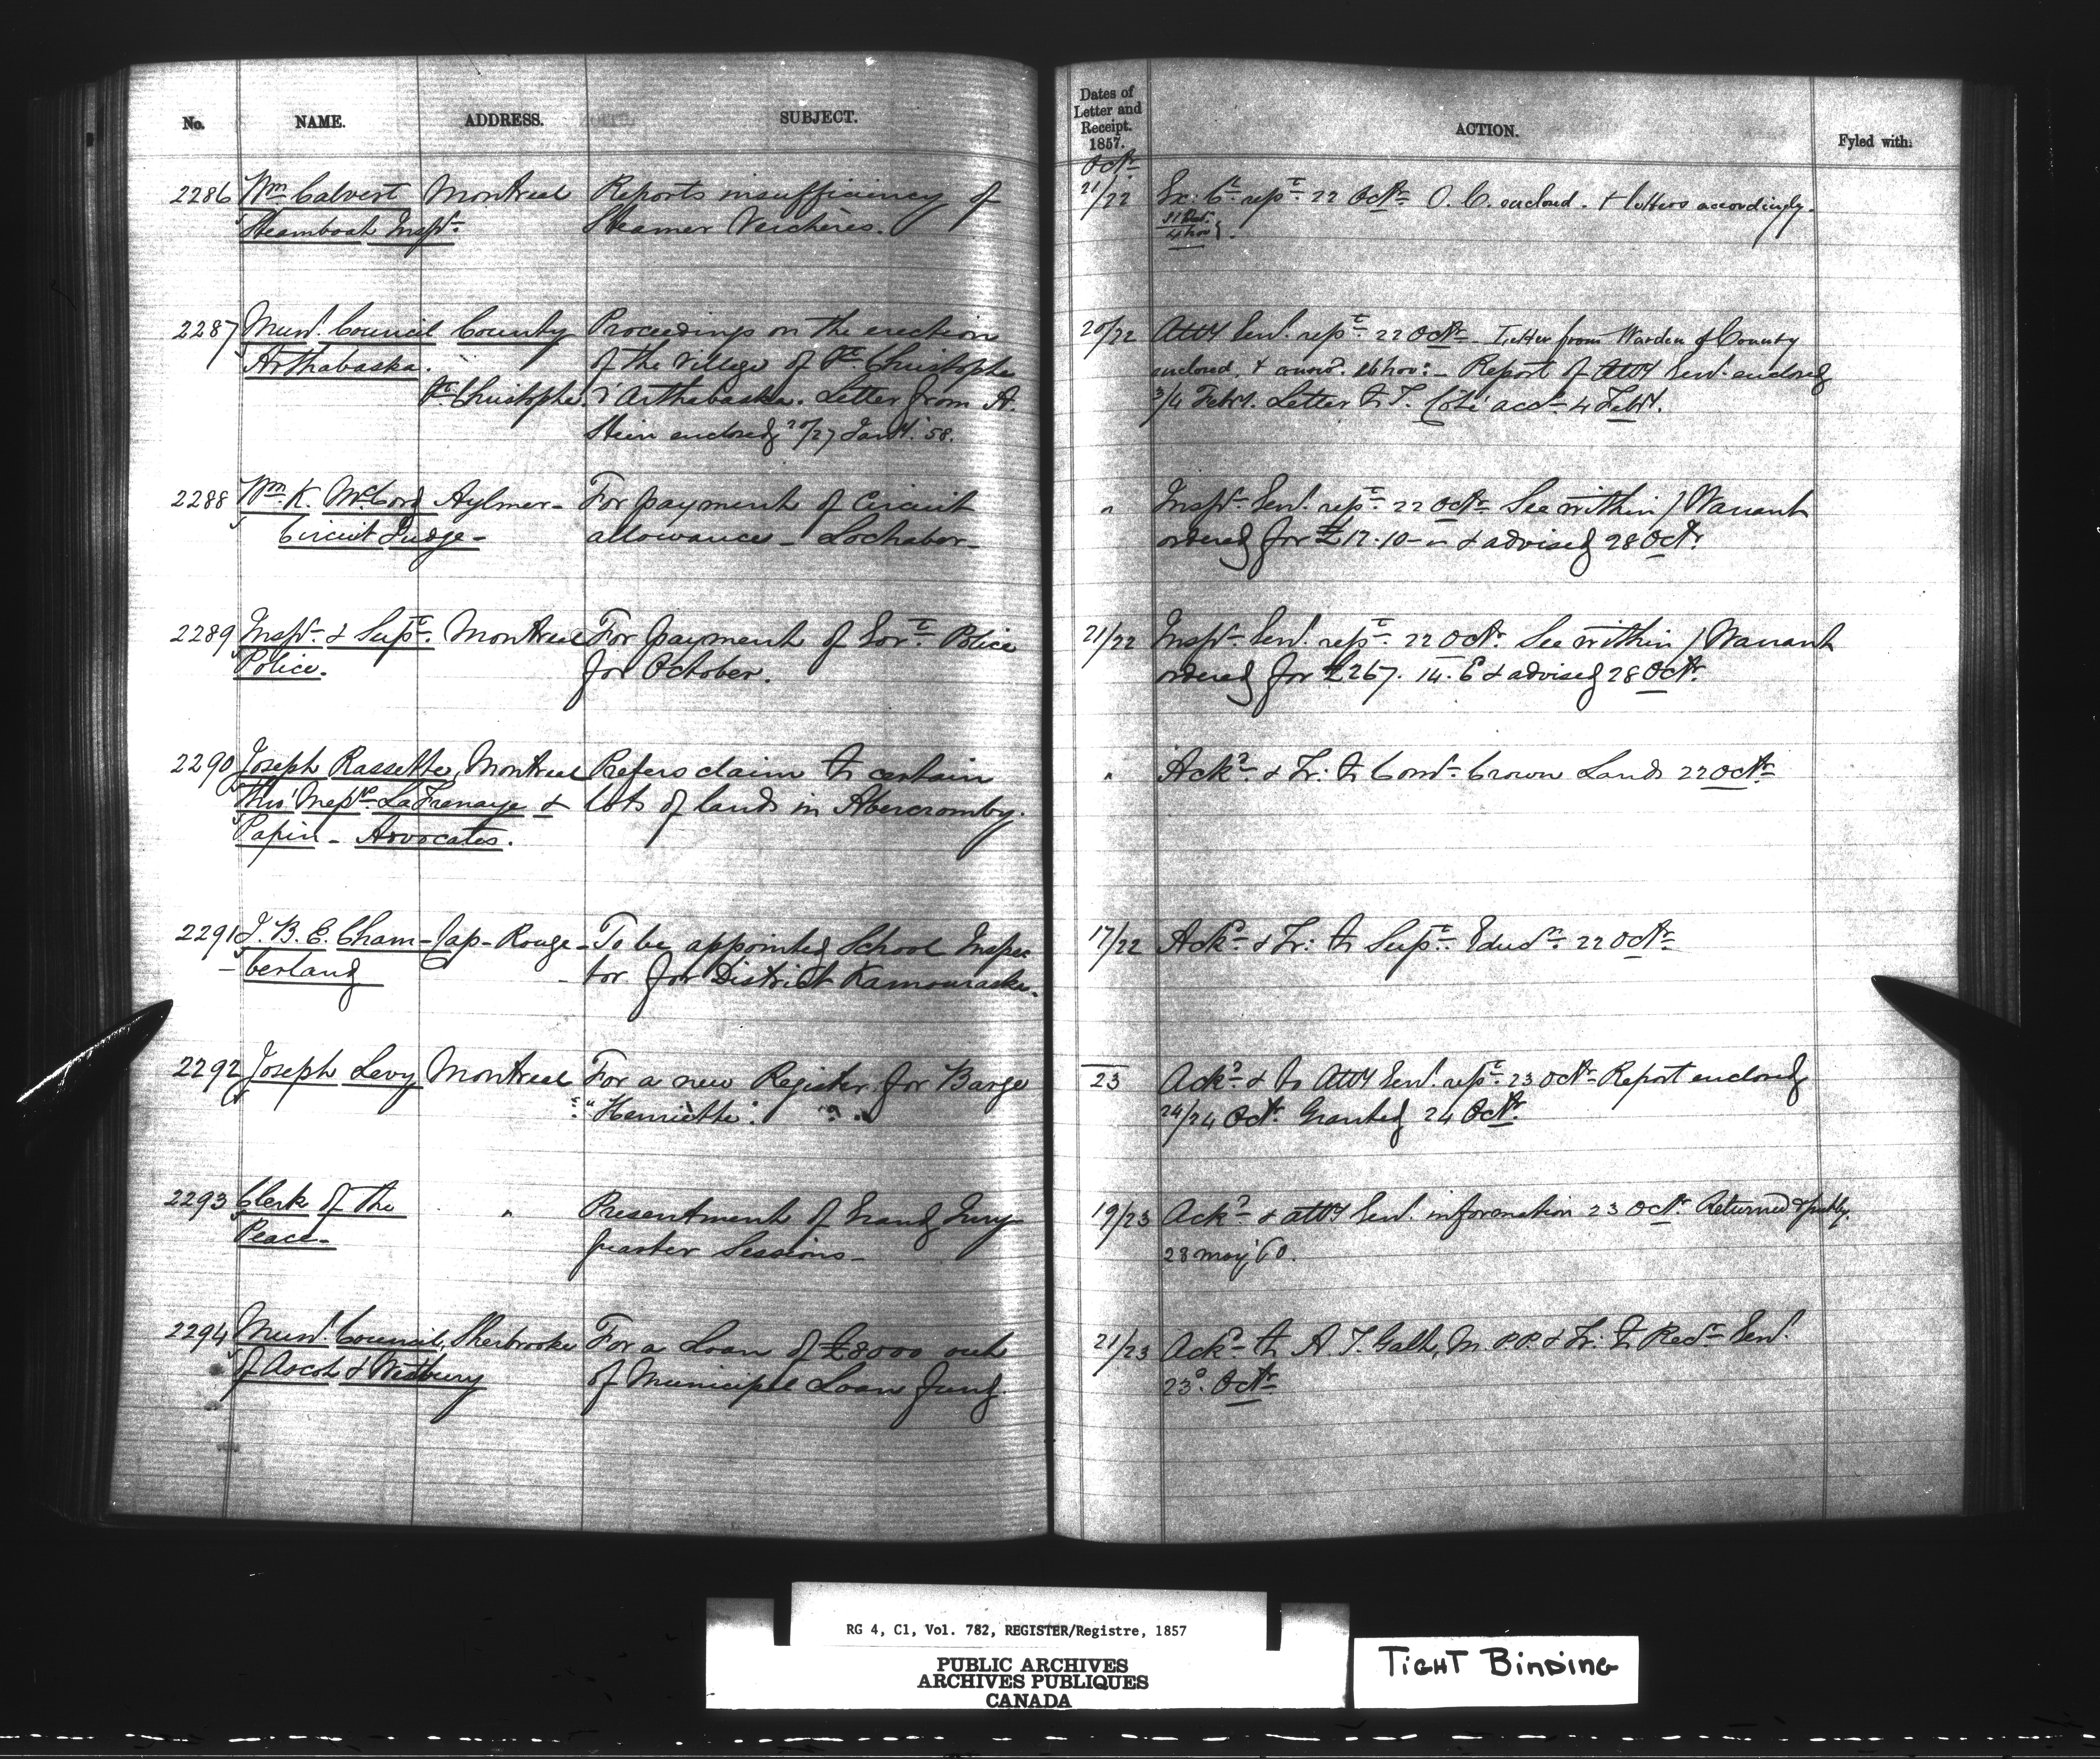 No. NAME. ADDRESS. SUBJECT.
2286 Wm Calvert Montreal Reports insufficiency of
Steamboat Inspr. Steamer Verchères.
2287 Munl. Council County Proceedings on the erection
Arthabaska. of the Village of St Christophe
St Christophe. d'Arthabaska. Letter from A.
Stein enclosed 20/27 Jany. 58.
2288 Wm. K. McCord Aylmer - For payment of Circuit
Circuit Judge - allowances - Lochaber -
2289 Inspr. & Supt. Montreal For payment of Govt. Police
Police. for October.
2290 Joseph Rassette, Montreal Prefers claim to certain
Thro' Messrs. LaFrenaye & lots of lands in Abercromby.
Papin - Advocates.
2291 J. B. E. Cham- Cap-Rouge - To be appointed School Inspec
berland - tor for District Kamouraska.
2292 Joseph Levy Montreal For a new Register for Barge
"Henriette".
2293 Clerk of the " Presentment of Grand Jury
Peace - Quarter Sessions -
2294 Munl. Council, Sherbrooke For a Loan of £8000 out
of Ascot & Westbury of Municipal Loan Fund
Dates of
Letter and
Receipt.
1857.
ACTION. Fyled with:
Octr.
21/22 Ex: Cl. rept. 22 Octr. O. C. enclosed. & letters accordingly.
31 Oct.
4 Nov
20/22 Atty Genl. rept. 22 Octr. Letter from Warden of County
enclosed, & 16 Nov: - Report of Atty Genl. enclosed
3/4 Feby. Letter to T. Coté accd. 4 Feby.
" Inspr. Genl. rept. 22 Octr. See within / Warrant
ordered for £12.10 - " & advised 28 Octr.
21/22 Inspr. Genl. rept. 22 Octr. See within / Warrant
ordered for £267. 14. 6 & advised 28 Octr.
" Ackd. & Tr: to Comr. Crown Lands 22 Octr.
17/22 Ackd. & Tr: to Supt. Educn. 22 Octr.
23 Ackd. & to Atty Genl. rept. 23 Octr. Report enclosed
24/24 Oct. Granted 24 Octr.
19/23 Ackd. & Atty Genl. information 23 Octr. Returned
28 May '60.
21/23 Ackd. to A. T. Galt, M. P.P. & Tr: to Recr. Genl.
23d. Octr.
RG 4, C1, Vol. 782, REGISTER/Registre, 1857
PUBLIC ARCHIVES
ARCHIVES PUBLIQUES
CANADA
TIGHT BINDING